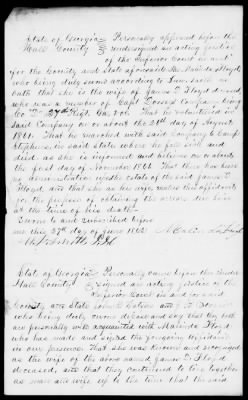 State of Georgia Personally appeared before the
Hall County undersigned an acting Justice
of the Inferior Court in and
for the County and State aforesaid Malinda Floyd
who being duly sworn according to law saith on
oath that she is the wife of James T. Floyd deceased
who was a member of Capt Dorseys Company being
Co Regt Ga Vol. That he volunteered in
said Company on or about the day of August
1861. That he marched with said Company to Camp
Stephens in said State where he fell sick and
died, as she is informed and believes on or about
the first day of November 1861. That there has been
no administration on the estate of the said James T.
Floyd, and that she as his wife makes this affidavit
for the purpose of obtaining the money due him
at the time of his death
Sworn to and subscribed before
me this 27th day of June 1862 Floyd
State of Georgia Personally came before the under
Hall County signed an acting Justice of the
Inferior Court in and for said
County and State
who being duly sworn depose and say that they
are personally acquainted with Malinda Floyd
who has made and signed the foregoing affidavit
in our presence That she was known and recognized
as the wife of the above named James T. Floyd
deceased, and that they continued to live together
as man and wife up to the time that the said